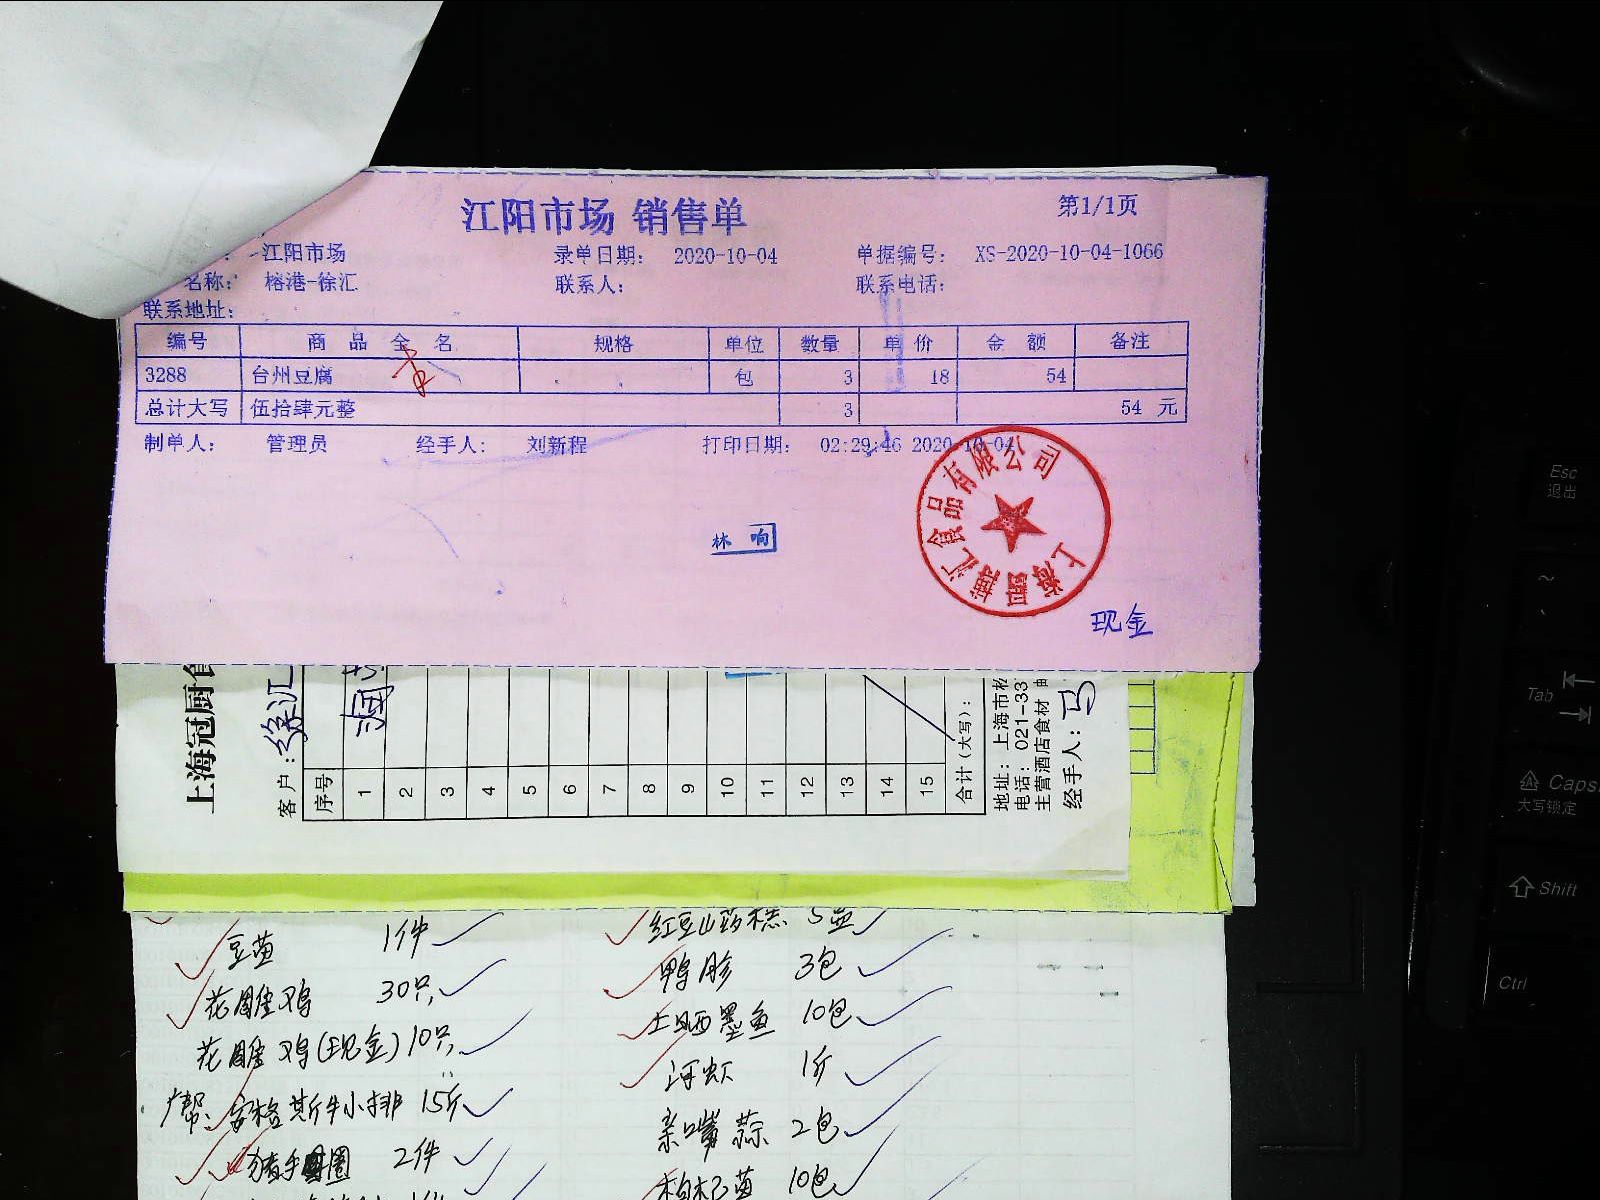 江阳市场 销售单
第1/1页
江阳市场 录单日期: 2020-10-04 单据编号: XS-2020-10-04-1066
名称: 榕港-徐汇 联系人: 联系电话:
联系地址:
编号 商品全名 规格 单位 数量 单价 金额 备注
3288 台州豆腐 包 3 18 54
总计大写 伍拾肆元整 3 54 元
制单人: 管理员 经手人: 刘新程 打印日期: 02:29:46 2020-10-04
林 响
现金
上海冠厨食
客户: 徐汇
序号
1
2
3
4
5
6
7
8
9
10
11
12
13
14
15
合计(大写):
地址: 上海市
电话: 021-33
主营酒店食材
经手人:
豆苗 1件
花雕鸡 30只
花雕鸡(现金) 10只
帮: 安格斯牛小排 15斤
2件
红豆山药糕 5盒
鸭胗 3包
土晒墨鱼 10包
河虾 1斤
亲嘴蒜 2包
枸杞苗 10包
Esc
退出
~
Tab
Caps
大写锁定
Shift
Ctrl